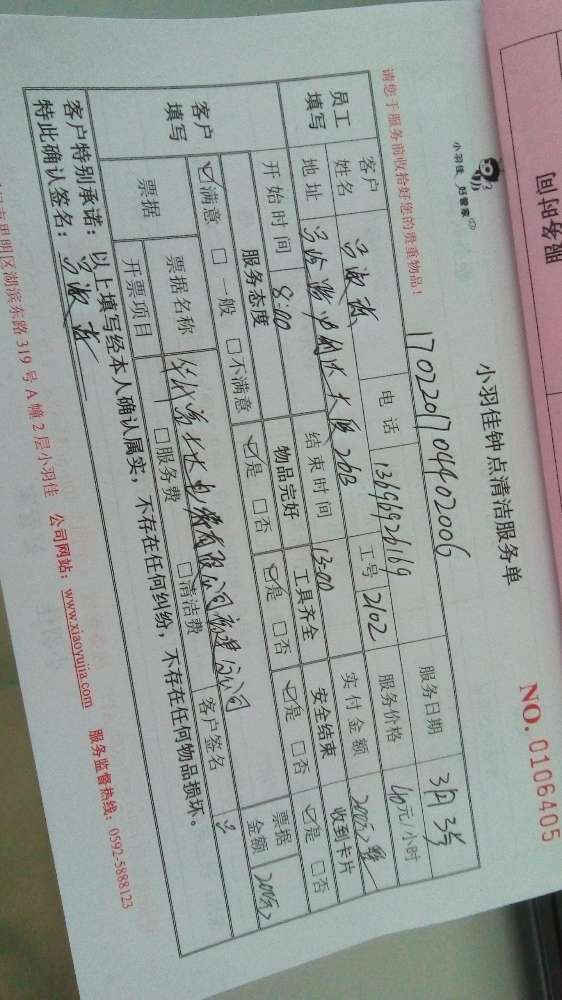 服务时间
小羽佳 好管家
小羽佳钟点清洁服务单
NO. 0106405
请您于服务前收拾好您的贵重物品！
1702201704402006
服务日期 3月3号
员工填写
客户姓名
电话 13696926169
服务价格 40元/小时
地址
工号 2102
实付金额
开始时间 8:00
结束时间 13:00
收到卡片
客户填写
服务态度
物品完好
工具齐全
安全结束
☑是 □否
☑满意 □一般 □不满意
☑是 □否
☑是 □否
☑是 □否
票据
票据名称
票据金额 200元
开票项目
□服务费
□清洁费
客户签名
客户特别承诺：以上填写经本人确认属实，不存在任何纠纷，不存在任何物品损坏。
特此确认签名：
思明区湖滨东路 319 号 A 幢 2 层小羽佳 公司网站：www.xiaoyujia.com 服务监督热线：0592-5888123